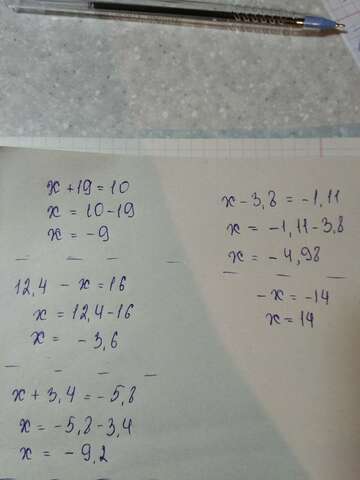 x + 19 = 10
x = 10 - 19
x = - 9
12,4 - x = 16
x = 12,4 - 16
x = - 3,6
x + 3,4 = - 5,8
x = - 5,8 - 3,4
x = - 9,2
x - 3,8 = - 1,11
x = - 1,11 - 3,8
x = - 4,98
- x = - 14
x = 14